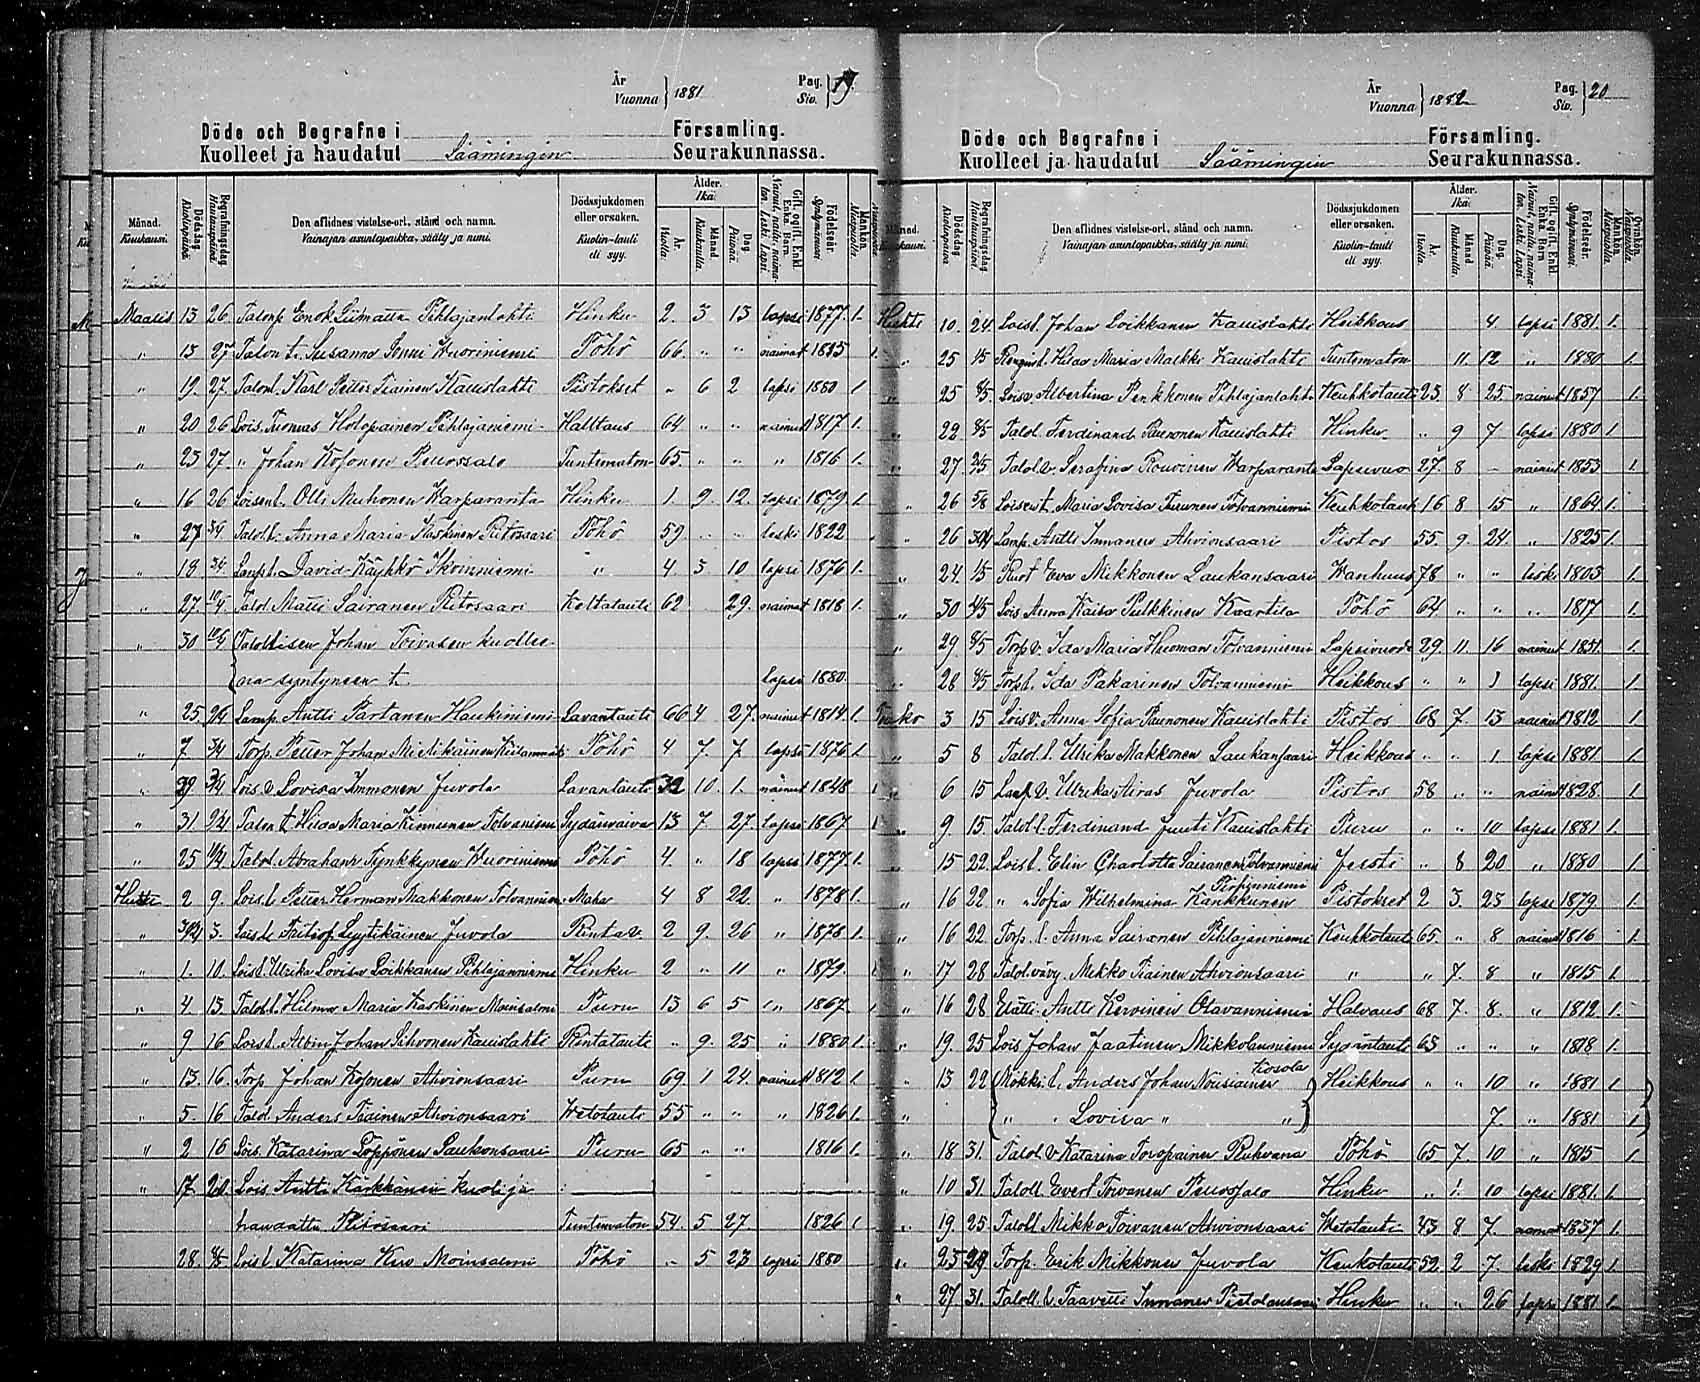 År
Vuonna } 1881
Pag.
Siv. } 19.
Döde och Begrafne i Församling.
Kuolleet ja haudatut Säämingin Seurakunnassa.
Månad. Kuukausi.
Dödsdag. Kuolinpäivä.
Begrafningsdag. Hautauspäivä.
Den aflidnes vistelse-ort, stånd och namn.
Vainajan asuntopaikka, sääty ja nimi.
Dödssjukdomen eller orsaken.
Kuolin-tauti eli syy.
Ålder. Ikä.
År. Vuotta.
Månad. Kuukautta.
Dag. Päivää.
Födelseår. Syntymävuosi
Mankön. Miespuolta.
Maalis 13 26 Talonp Enok Liimatta Pihlajanlahti Hinku 2. 3 13 lapsi 1877. 1.
" 13 27 Talon t. Susanna Jonni Wuoriniemi Pöhö 66 " " naimat 1815 1
" 19. 27. Talonl. Karl Petter Tiainen Kauislahti Pistokset " 6 2 lapsi 1880 1
" 20 26 Lois. Tuomas Holopainen Pihlajaniemi Halltaus 64 " " naimat 1817 1.
" 23 27. " Johan Kosonen Pesossalo Tuntematon 65. " " " 1816 1.
" 16 26 Loisenl. Olli Muhonen Warparanta Hinku 1. 9. 12. lapsi 1879. 1
" 27 3/4 Talol.l. Anna Maria Kaskinen Ritosaari Pöhö 59 leski 1822
" 18 3/4 Lampl. David Käyhkö Ikoinniemi " 4. 3 10 lapsi 1876 1.
" 27. 10/4 Talol Matti Sairanen Ritosaari Keltatauti 62 29. naimat 1818 1.
" 30 10/4 Talollisen Johan Toivasen kuollee-
na syntyneen t. lapsi 1880.
" 25. 2/4 Lamp. Antti Partanen Haukiniemi Lavantauti 66 4 27. naimat 1814. 1.
" 7 3/4 Torp. Petter Johan Miettikäinen Pöhö 4 7. 7 lapsi 1876 1.
" 29 3/4 Lois v Lovisa Immonen Juvola Lavantauti 32 10. 1. naimat 1848
" 31 9/4 Talon t. Hilda Maria Kinnunen Tolvaniemi Sydänvaiva 13 7 27. lapsi 1867
" 25 Talol. Abraham Tynkkynen Wuoriniemi Pöhö 4. " 18 lapsi 1877. 1.
Huhti 2 9. Lois.l. Petter Herman Makkonen Tolvanniemi Maha 4 8 22. " 1878 1.
" 3. Lois l. Fritiof Lyytikäinen Juvola Rintav. 2 9. 26 " 1878 1.
" 1. 10. Lois l. Ulrika Lovisa Loikkanen Pihlajaniemi Hinku 2 " 11 " 1879.
" 4. 13. Talol.l. Hilma Maria Kaskinen Moinsalmi Puru 13 6 5 " 1867.
" 9 16 Lois l. Albin Johan Sihvonen Kauislahti Rintatauti " 9. 25 " 1880. 1.
" 13. 16. Torp Johan Kosonen Ahvionsaari Puru 69 1 24. naimat 1812 1.
" 5. 16 Talol. Anders Tiainen Ahvionsaari Wetotauti 55 " " " 1826 1.
" 2 10 Lois. Katarina Töppönen Laukansaari Puru 65 " " 1816 1.
" 17. 20. Lois Antti Kärkkänen kuoli ja
haudattu Ritosaari Tuntematon 54. 5 27 1826 1
28. Lois l. Katarina Kuro Moinsalmi Pöhö " 5 23 lapsi 1880
År
Vuonna } 1882
Pag.
Siv. } 20
Döde och Begrafne i Församling.
Kuolleet ja haudatut Säämingin Seurakunnassa.
Månad. Kuukausi.
Dödsdag. Kuolinpäivä.
Begrafningsdag. Hautauspäivä.
Den aflidnes vistelse-ort, stånd och namn.
Vainajan asuntopaikka, sääty ja nimi.
Dödssjukdomen eller orsaken.
Kuolin-tauti eli syy.
Ålder. Ikä.
År. Vuotta.
Månad. Kuukautta.
Dag. Päivää.
Födelseår. Syntymävuosi
Mankön. Miespuolta.
Qvinkön. Vaimopuolta.
Huhti 10. 24. Lois l. Johan Loikkanen Kauislahti Heikkous 4. lapsi 1881. 1.
" 25 1/5 Hilda Maria Malkki Kauislahti Tuntematon 11. 12 " 1880 1.
" 25 8/5. Lois v. Albertina Penkkonen Pihlajanlahti Keuhkotauti 23. 8 25. naimat 1857 1.
" 22 8/5. Talol. Ferdinand Paunonen Kauislahti Hinku " 9 7 lapsi 1880 1.
" 27. Talol.v. Serafina Rouvinen Warparanta Lapsivuo 27 8 - naimat 1853 1.
" 26 5/8 Maria Lovisa Turunen Tolvanniemi Keuhkotauti 16 8 15 " 1864 1.
" 26 Lamp. Antti Inmanen Ahvionsaari Pistos 55. 9. 24. " 1825 1.
" 24. 1/5 Ruot Eva Mikkonen Laukansaari Wanhuus 78 " " leski 1803 1.
" 30 Lois Anna Kaisa Pulkkinen Kaartila Pöhö 64 " " " 1817 1.
" 29 8/5 Torp v. Ida Maria Huoman Tolvanniemi Lapsivuode 29 11. 16 naimat 1851. 1.
" 28 8/5 Torp l. Ida Pakarinen Tolvanniemi Heikkous " " 1 lapsi 1881. 1.
Touko 3 15 Lois v. Anna Sofia Paunonen Kauislahti Pistos 68 7. 13 naimat 1812 1.
" 5 8 Talol l. Ulrika Makkonen Laukansaari Heikkous " " 1 lapsi 1881. 1.
" 6 15 Ulrika Airas Juvola Pistos 58 " " naimat 1828. 1.
" 9. 15. Talol.l. Ferdinand Juuti Kauislahti Puru " " 10 lapsi 1881 1.
" 15 22. Lois l. Elin Charlotta Sairanen Tolvanniemi " 8 20 " 1880 1.
" 16 22. " " Sofia Wilhelmina Kankkunen Pistokset 2 3. 23 lapsi 1879. 1.
" 16 22. Torp. l. Anna Sairanen Pihlajaniemi Keuhkotauti 65. " 8 naimat 1816 1.
" 17 28 Talol.vävy. Mikko Tiainen Ahvionsaari " " 7. 8 " 1815 1
" 16 28 Elätti. Antti Kervinen Otavanniemi Halvaus 68 7. 8. " 1812. 1.
" 19. 25 Lois Johan Jaatinen Mikkolanniemi Sydäntauti 63 " " " 1818 1.
Kosola
" 13 22 Mökki.l. Anders Johan Nousiainen Heikkous " " 10 " 1881 1.
" " " Lovisa " " 7. " 1881 1
" 18 31. Talol v Katarina Toropainen Ruhvana Pöhö 65 7. 10 " 1815 1.
" 10 31 Talol l. Evert Toivanen Pesossalo Hinku " 1. 10 lapsi 1881. 1.
" 19 25. Talol l Mikko Toivanen Ahvionsaari Wetotauti 43 8 7. naimat 1837 1.
" 23 29 Torp. Erik Mikkonen Juvola Keuhkotauti 52. 2 7. leski 1829 1.
" 27 31. Talol l. Taavetti Inmanen Hinku " " 26 lapsi 1881 1.